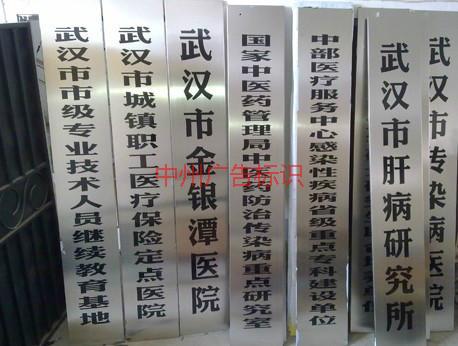 武汉市市级专业技术人员继续教育基地
武汉市城镇职工医疗保险定点医院
武汉市金银潭医院
国家中医药管理局中医药防治传染病重点研究室
中部医疗服务中心感染性疾病省级重点专科建设单位
武汉市肝病研究所
武汉市传染病医院
中州广告标识